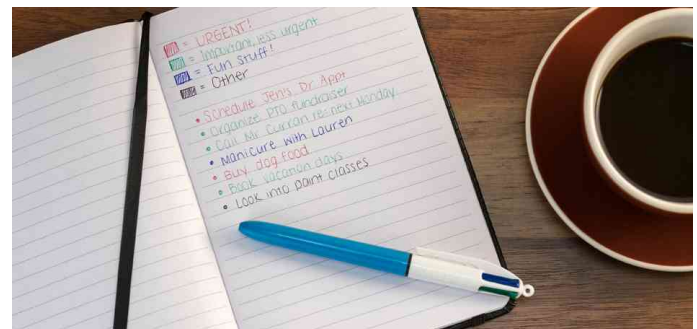 = URGENT!
= Important, less urgent
= Fun Stuff!
= Other
• Schedule Jen's Dr Appt
• Organize PTO fundraiser
• Call Mr Curran re: next Monday
• Manicure with Lauren
• Buy dog food
• Book vacation days
• Look into paint classes